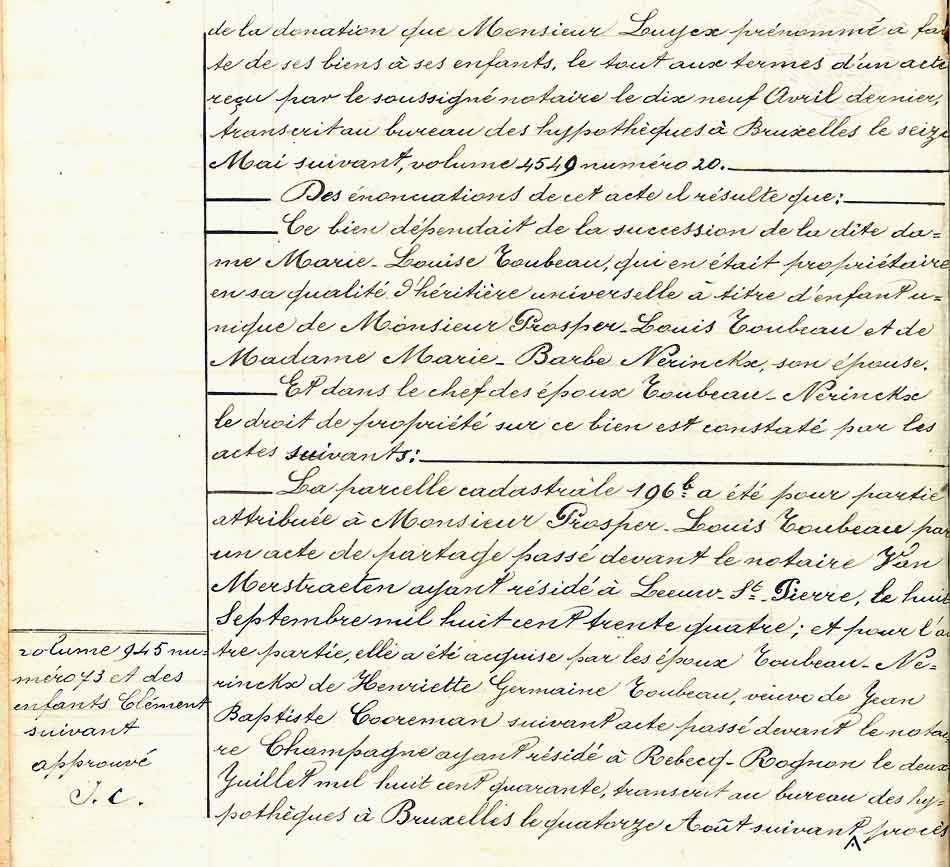 de la donation que Monsieur Luycx prénommé a fai
te de ses biens à ses enfants, le tout aux termes d'un acte
reçu par le soussigné notaire le dix neuf Avril dernier,
transcrit au bureau des hypothèques à Bruxelles le seize
Mai suivant, volume 4549 numéro 20.
Des énonciations de cet acte il résulte que:
Ce bien dépendait de la succession de la dite da=
me Marie-Louise Toubeau, qui en était propriétaire
en sa qualité d'héritière universelle à titre d'enfant u=
nique de Monsieur Prosper-Louis Toubeau et de
Madame Marie-Barbe Nerinckx, son épouse.
Et dans le chef des époux Toubeau-Nerinckx
le droit de propriété sur ce bien est constaté par les
actes suivants:
La parcelle cadastrale 196b a été pour partie
attribuée à Monsieur Prosper-Louis Toubeau par
un acte de partage passé devant le notaire Van
Merstraeten ayant résidé à Leeuw-St-Pierre, le huit
Septembre mil huit cent trente quatre; et pour l'a
tre partie, elle a été acquise par les époux Toubeau-Ne=
rinckx de Henriette Germaine Toubeau, veuve de Jean
Baptiste Cooreman suivant acte passé devant le notai
re Champagne ayant résidé à Rebecq-Rognon le deux
Juillet mil huit cent quarante, transcrit au bureau des hy=
pothèques à Bruxelles le quatorze Août suivant procès
volume 945 nu=
méro 73 et des
enfants Clément
suivant
approuvé
J. C.